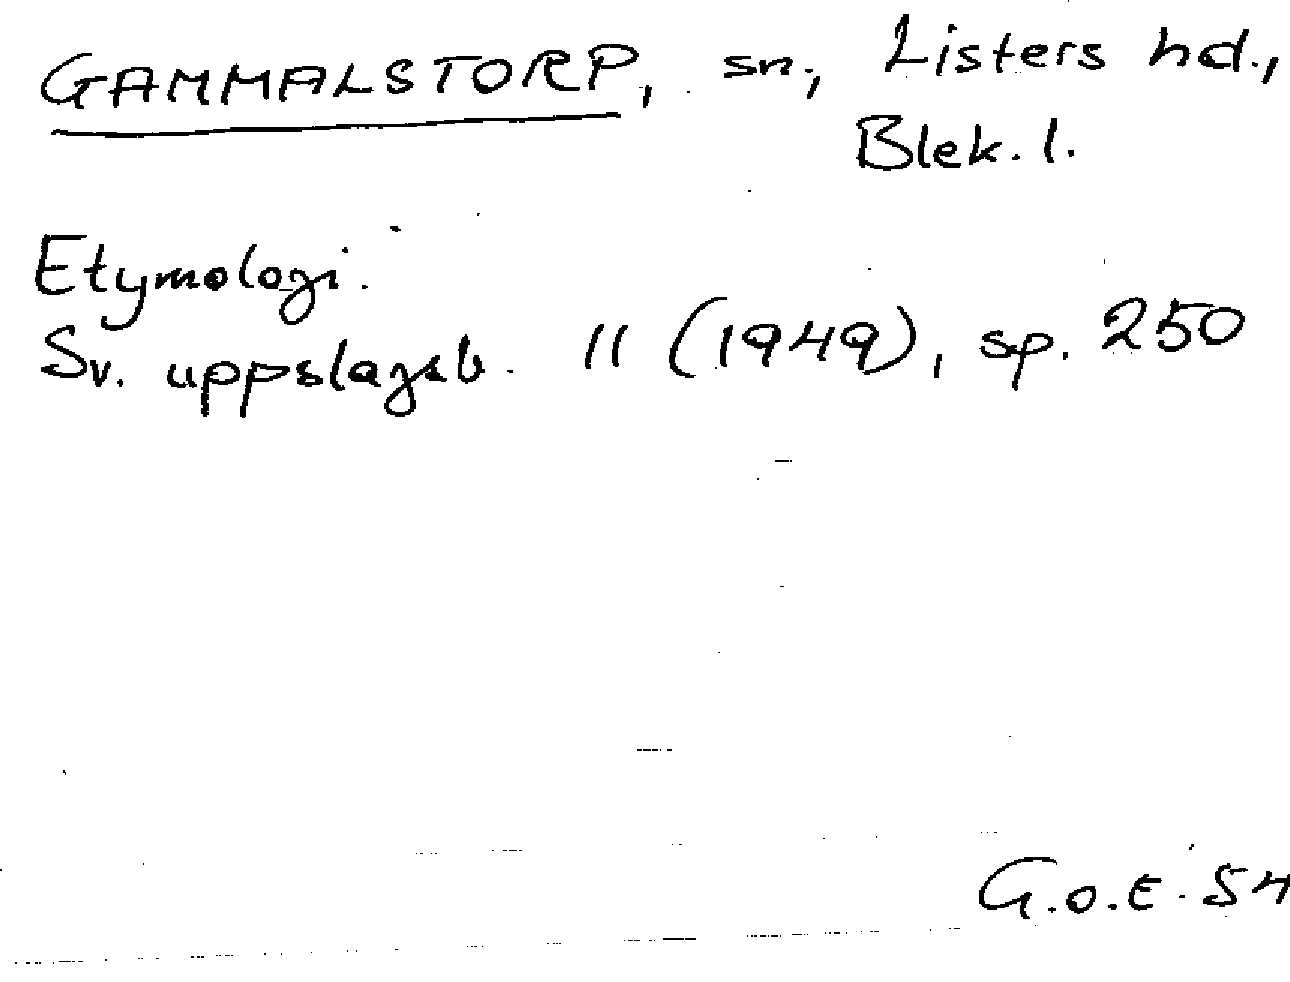 GAMMALSTORP, sn, Listers hd.,
Blek. l.
Etymologi.
Sv. uppslagsb. 11 (1949), sp. 250
G.O.E. 54